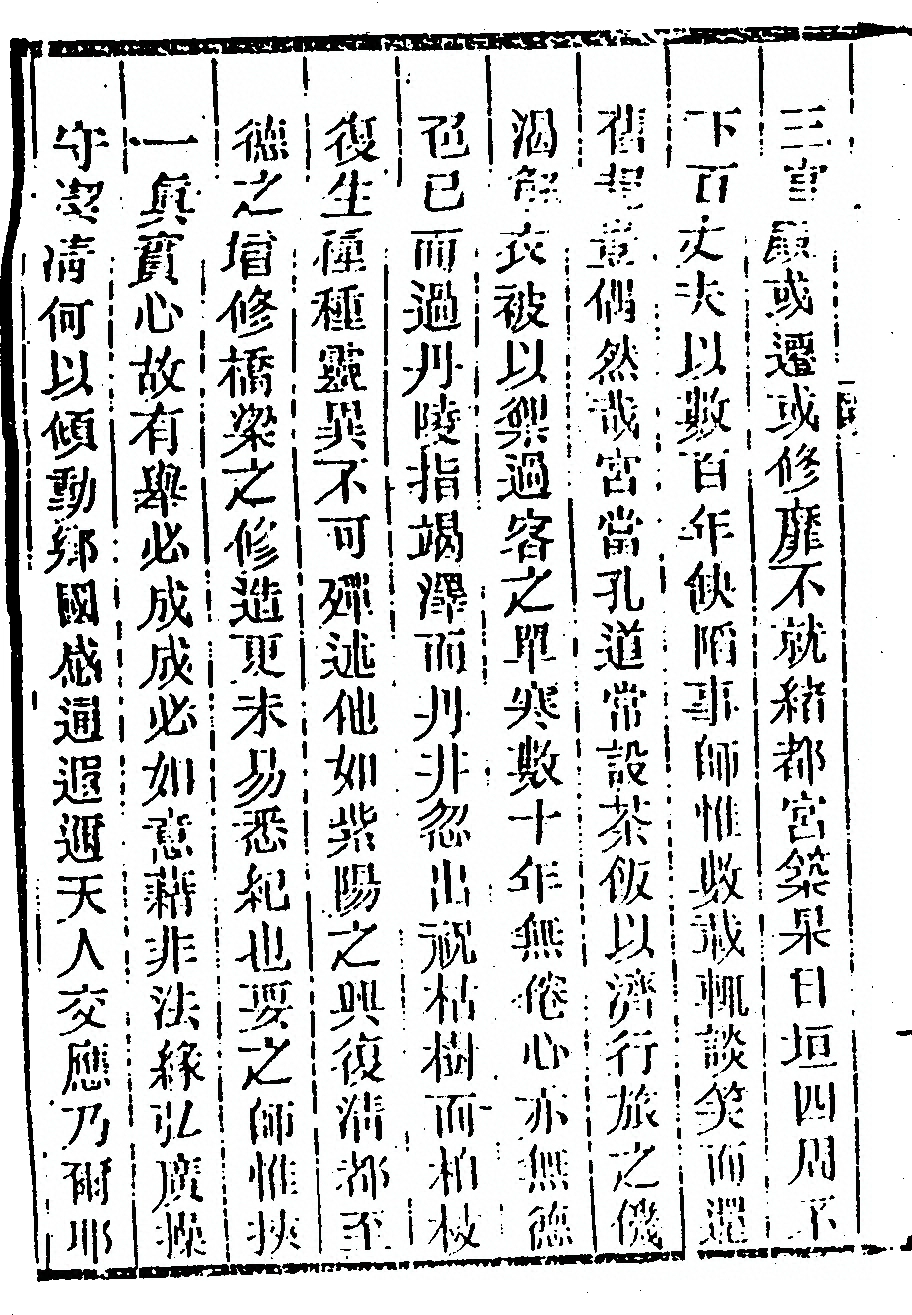 三官殿或遷或修靡不就緒都宮築杲日垣四周不
下百丈夫以數百年缺陷事師惟數載輒談笑而還
舊規豈偶然哉宮當孔道常設茶飯以濟行旅之饑
渴解衣被以禦過客之單寒數十年無倦心亦無德
色已而過丹陵指竭澤而丹井忽出祝枯樹而柏枝
復生種種靈異不可殫述他如紫陽之興復清都至
德之增修橋梁之修造更未易悉紀也要之師惟挾
一眞實心故有舉必成成必如意藉非法緣弘廣操
守凌清何以傾動鄉國感通遐邇天人交應乃爾耶